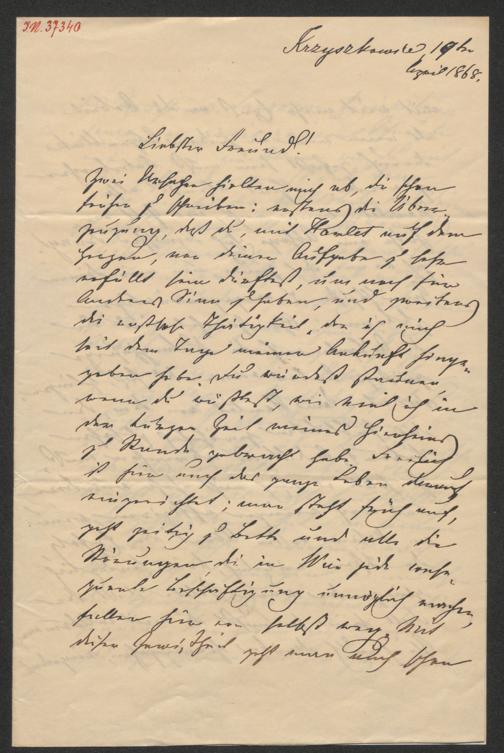 J.N. 37340
Krzyszkowice, 19ten
April 1868.
Liebster Freund!
Zwei Ursachen hielten mich ab, dir schon
früher z schreiben: erstens die Über-
zeugung, daß du, mit Hamlet auf dem
von deiner Aufgabe z sehr
erfüllt sein dürftest, um noch für
Anderes Sinn z haben, und zweitens
die rastlose Thätigkeit, der ich mich
seit dem Tage meiner Ankunft hinge-
geben habe. Du würdest staunen
wenn du wüßtest, wie viel ich in
der kurzen Zeit meines Hierseins
z Stande gebracht habe. Freilich
ist hier auch das ganze Leben darnach
eingerichtet; man steht früh auf,
geht zeitig z Bette und alle die
Störungen die in Wien jede conse-
quente Beschäftigung unmöglich machen,
fallen hier von selbst weg. Mit
dieser geht man auch schon